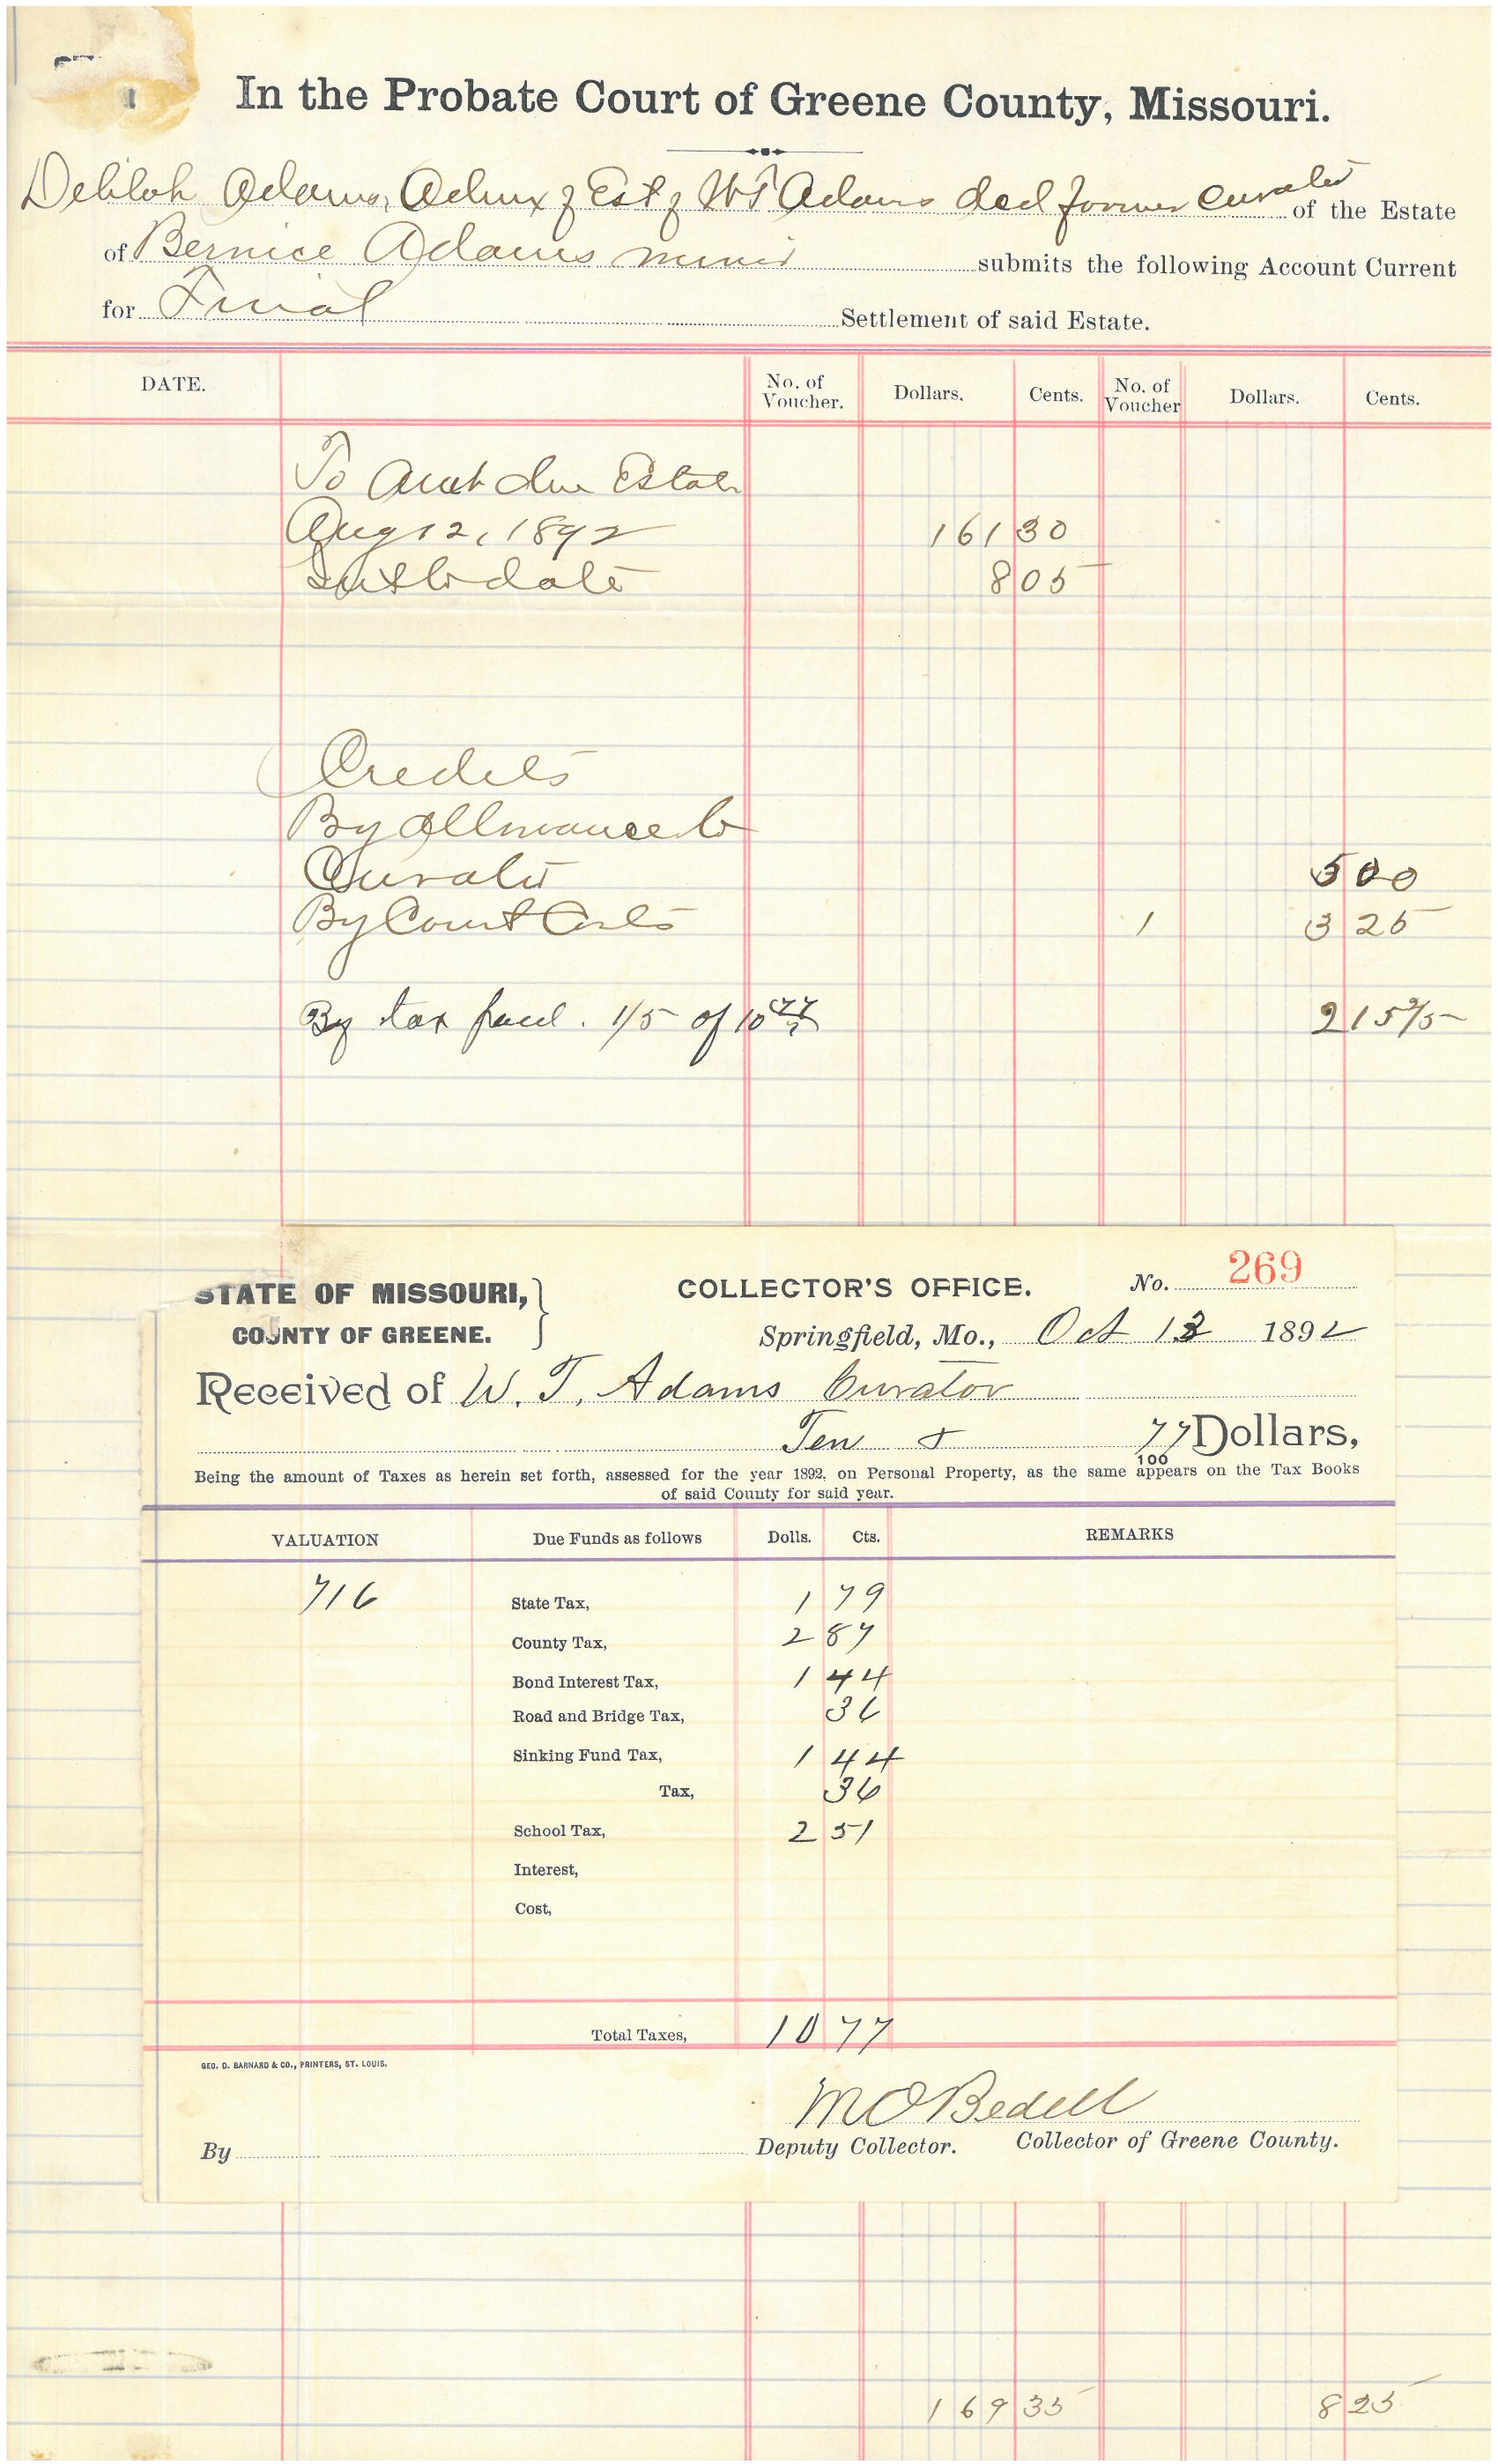 In the Probate Court of Greene County, Missouri.
Delilah Adams, Admx of Est of W T Adams decd former Curator of the Estate
of Bernice Adams minor submits the following Account Current
for Final Settlement of said Estate.
DATE. No. of Voucher. Dollars. Cents. No. of Voucher Dollars. Cents.
To Amt due Estate
Aug 12, 1892 161 30
Int to date 8 05
Credits
By Allowance to
Curator 5 00
By Court Costs 1 3 25
By tax paid. 1/5 of 10 77 2 15 2/5
STATE OF MISSOURI, COUNTY OF GREENE.
COLLECTOR'S OFFICE. No. 269
Springfield, Mo., Oct 13 1892
Received of W. T. Adams Curator
Ten & 77/100 Dollars,
Being the amount of Taxes as herein set forth, assessed for the year 1892, on Personal Property, as the same appears on the Tax Books
of said County for said year.
VALUATION Due Funds as follows Dolls. Cts. REMARKS
716 State Tax, 1 79
County Tax, 2 87
Bond Interest Tax, 1 44
Road and Bridge Tax, 36
Sinking Fund Tax, 1 44
Tax, 36
School Tax, 2 51
Interest,
Cost,
Total Taxes, 10 77
GEO. D. BARNARD & CO., PRINTERS, ST. LOUIS.
M O Bedell
By Deputy Collector. Collector of Greene County.
169 35 8 25